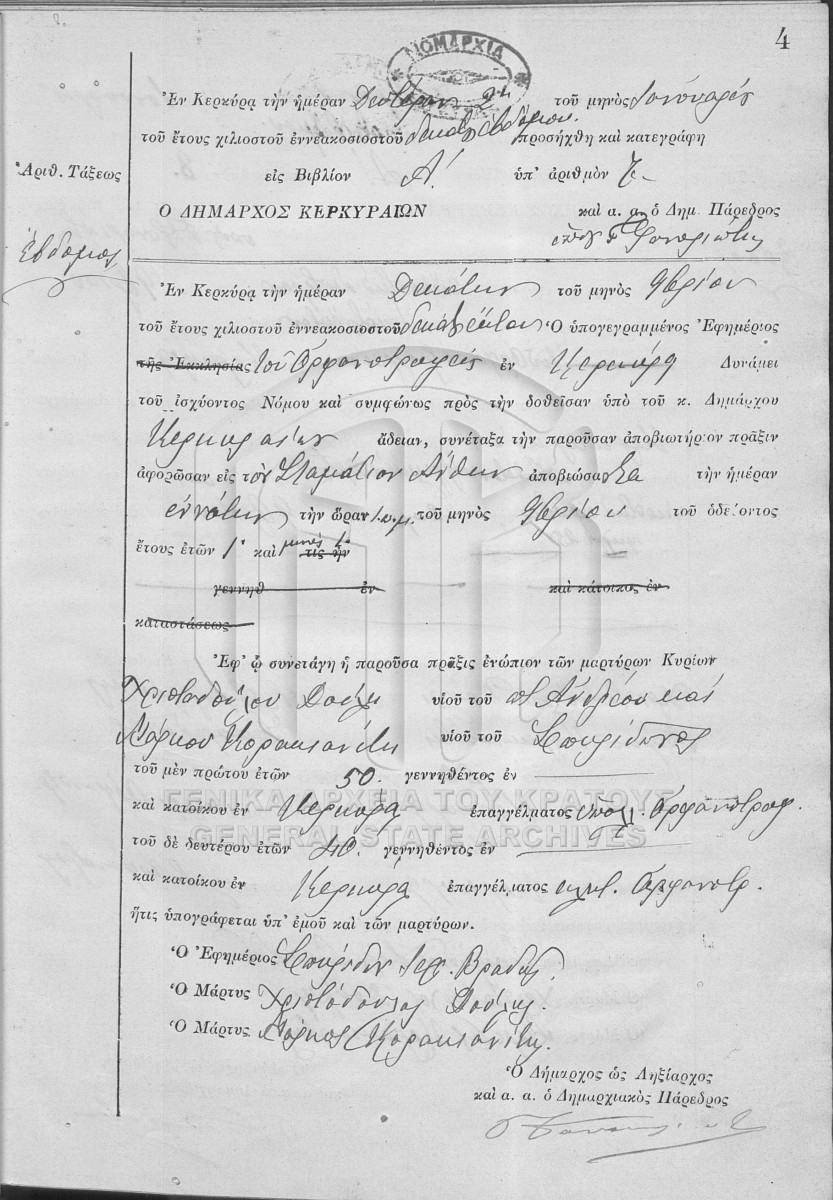 4
ΝΟΜΑΡΧΙΑ
Ἐν Κερκύρᾳ τὴν ἡμέραν Δευτέραν 2αν τοῦ μηνὸς Ἰανουαρίου
τοῦ ἔτους χιλιοστοῦ ἐννεακοσιοστοῦ δεκάτου ἑβδόμου προσήχθη καὶ κατεγράφη
Ἀριθ. Τάξεως
εἰς Βιβλίον Α΄ ὑπ' ἀριθμὸν 7
Ο ΔΗΜΑΡΧΟΣ ΚΕΡΚΥΡΑΙΩΝ
καὶ α. α. ὁ Δημ. Πάρεδρος
Ἕβδομος
Ἐν Κερκύρᾳ τὴν ἡμέραν Δεκάτην τοῦ μηνὸς 9βρίου
τοῦ ἔτους χιλιοστοῦ ἐννεακοσιοστοῦ δεκάτου ἕκτου Ὁ ὑπογεγραμμένος Ἐφημέριος
τῆς Ἐκκλησίας τοῦ Ὀρφανοτροφείου ἐν Κερκύρᾳ Δυνάμει
τοῦ ἰσχύοντος Νόμου καὶ συμφώνως πρὸς τὴν δοθεῖσαν ὑπὸ τοῦ κ. Δημάρχου
Κερκυραίων ἄδειαν, συνέταξα τὴν παροῦσαν ἀποβιωτήριον πρᾶξιν
ἀφορῶσαν εἰς τὸν Σταμάτιον Ἄνθην ἀποβιώσαντα τὴν ἡμέραν
ἐννάτην τὴν ὥραν 1 π.μ. τοῦ μηνὸς 9βρίου τοῦ ὁδεύοντος
ἔτους ἐτῶν 1 καὶ μηνὸς 1 τίς ἦν
γεννηθ ἐν καὶ κάτοικος ἐν
καταστάσεως
Ἐφ' ᾧ συνετάγη ἡ παροῦσα πρᾶξις ἐνώπιον τῶν μαρτύρων Κυρίων
Χριστοδούλου Δούλη υἱοῦ τοῦ Ἀνδρέου καὶ
Μάρκου Κορακιανίτη υἱοῦ τοῦ Σπυρίδωνος
τοῦ μὲν πρώτου ἐτῶν 50. γεννηθέντος ἐν
καὶ κατοίκου ἐν Κερκύρᾳ ἐπαγγέλματος ὑπάλλ. Ὀρφανοτροφ.
τοῦ δὲ δευτέρου ἐτῶν 40. γεννηθέντος ἐν
καὶ κατοίκου ἐν Κερκύρᾳ ἐπαγγέλματος Ὀρφανοτρ.
ἥτις ὑπογράφεται ὑπ' ἐμοῦ καὶ τῶν μαρτύρων.
Ὁ Ἐφημέριος Σπυρίδων Ἱερ. Βραδῆς
Ὁ Μάρτυς Χριστόδουλος Δούλης
Ὁ Μάρτυς Μάρκος Κορακιανίτης
Ὁ Δήμαρχος ὡς Ληξίαρχος
καὶ α. α. ὁ Δημαρχιακὸς Πάρεδρος
ΓΕΝΙΚΑ ΑΡΧΕΙΑ ΤΟΥ ΚΡΑΤΟΥΣ
GENERAL STATE ARCHIVES